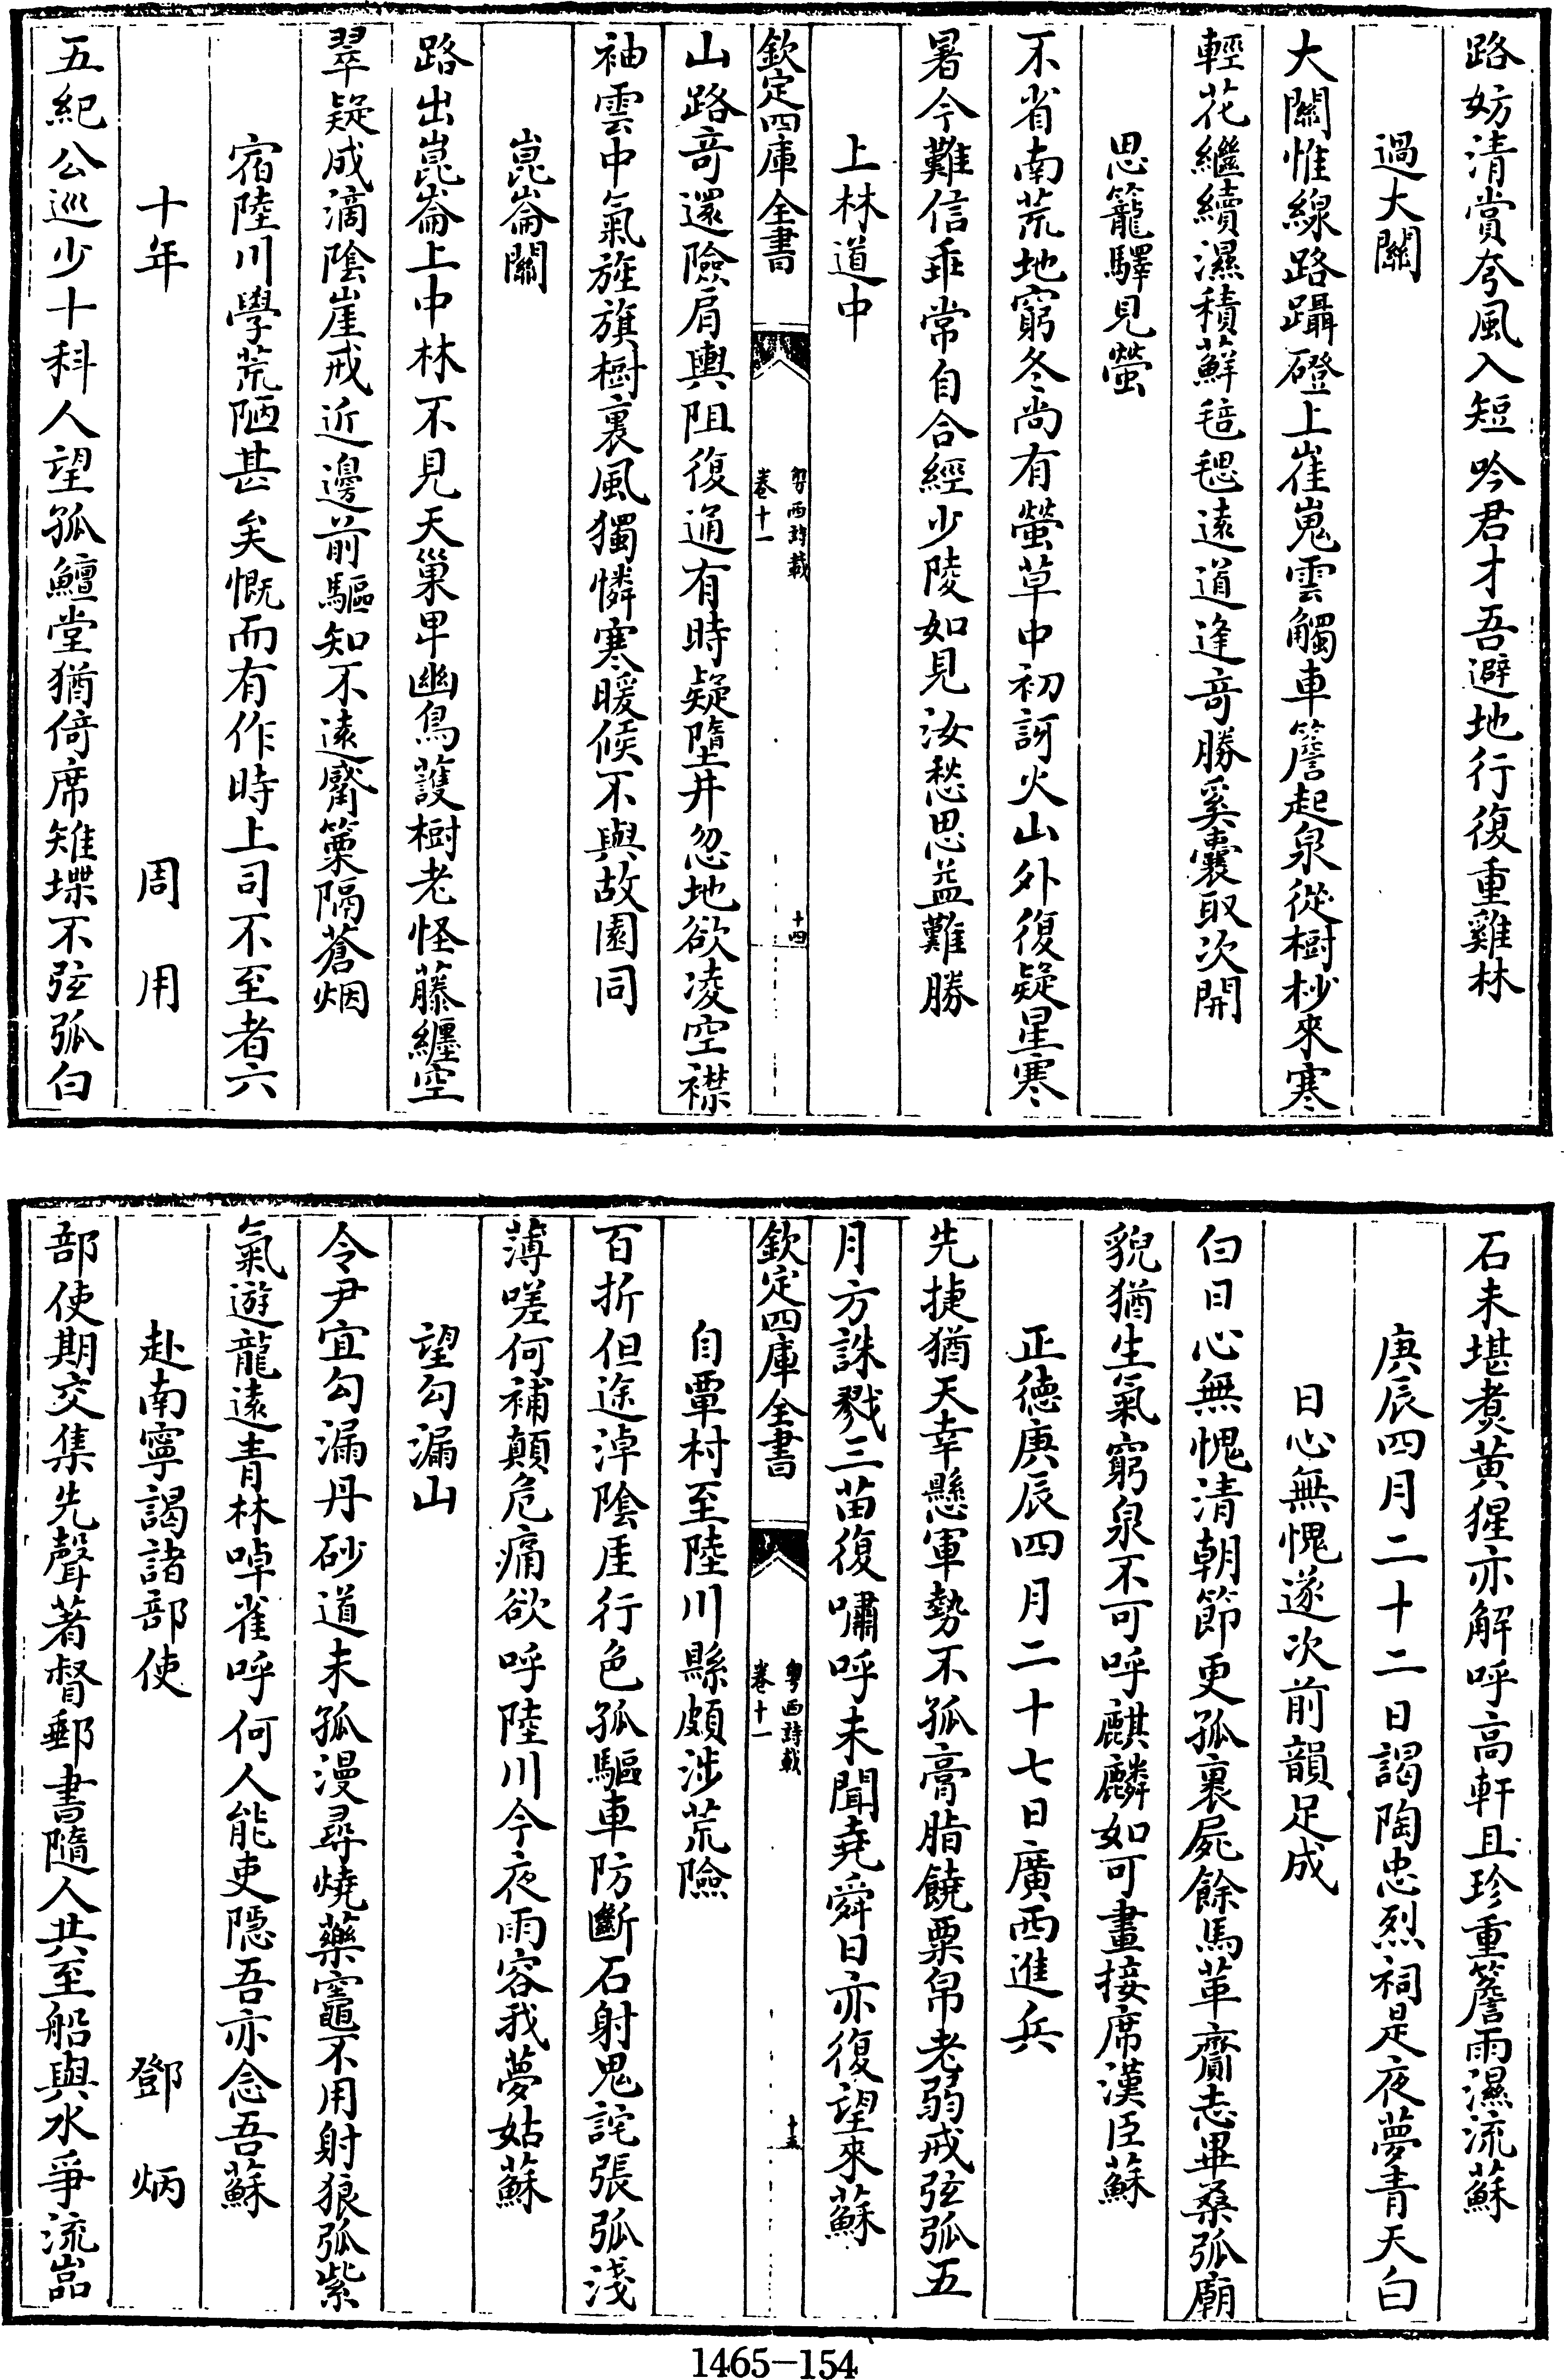 路妨清賞夸風入短吟君才吾避地行復重雞林
過大關
大關惟線路躡磴上崔嵬雲觸車簷起泉從樹杪來寒
輕花繼續濕積蘚毰毸遠道逢奇勝奚囊取次開
思籠驛見螢
不省南荒地窮冬尚有螢草中初訝火山外復疑星寒
暑今難信乖常自合經少陵如見汝愁思益難勝
上林道中
欽定四庫全書
粵西詩載
卷十一
十四
山路奇還險肩輿阻復通有時疑墮井忽地欲凌空襟
袖雲中氣旌旗樹裏風獨憐寒暖候不與故園同
崑崙關
路出崑崙上中林不見天巢卑幽鳥護樹老怪藤纏空
翠疑成滴陰崖戒近邊前驅知不遠觱篥隔蒼烟
宿陸川學荒陋甚矣慨而有作時上司不至者六
十年 周用
五紀公巡少十科人望孤鱣堂猶倚席雉堞不弦弧白
石未堪煑黄猩亦解呼高軒且珍重簷雨濕流蘇
庚辰四月二十二日謁陶忠烈祠是夜夢青天白
日心無愧遂次前韻足成
白日心無愧清朝節更孤裹屍餘馬革齎志畢桑弧廟
貌猶生氣窮泉不可呼麒麟如可畫接席漢臣蘇
正徳庚辰四月二十七日廣西進兵
先捷猶天幸懸軍勢不孤膏脂饒粟帛老弱戒弦弧五
月方誅戮三苗復嘯呼未聞堯舜日亦復望來蘇
欽定四庫全書
粵西詩載
卷十一
十五
自覃村至陸川縣頗涉荒險
百折但途淖陰厓行色孤驅車防斷石射鬼詫張弧淺
薄嗟何補顛危痛欲呼陸川今夜雨容我夢姑蘇
望勾漏山
令尹宜勾漏丹砂道未孤漫尋燒藥竈不用射狼弧紫
氣遊龍遠青林啅雀呼何人能吏隱吾亦念吾蘇
赴南寧謁諸部使 鄧炳
部使期交集先聲著督郵書隨人共至船與水爭流嵓
1465-154